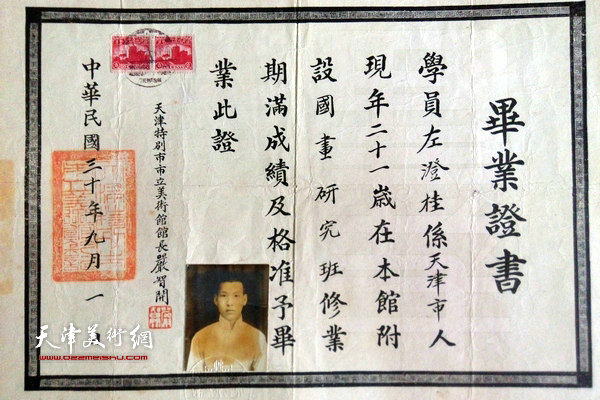 畢業證書
學員左澄桂係天津市人
現年二十一歲在本館附
設國畫研究班修業
期滿成績及格准予畢
業此證
天津特別市市立美術館館長嚴智開
中華民國三十年九月一日
天津美術網
www.022meishu.com